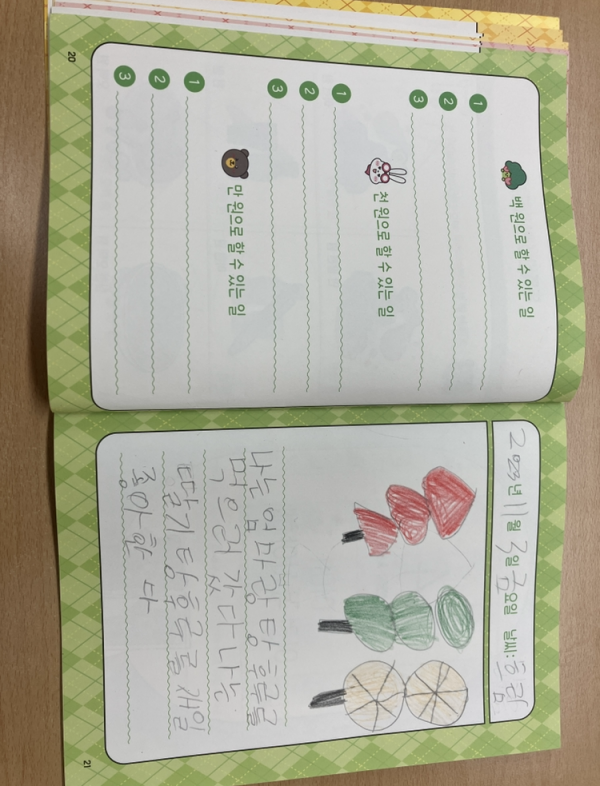 백 원으로 할 수 있는 일
1
2
3
천 원으로 할 수 있는 일
1
2
3
만 원으로 할 수 있는 일
1
2
3
20
2023년 11월 3일 금요일 날씨: 흐림
나는 엄마랑 탕후루를
먹으러 갔다 나는
딸기 탕후루를 재일
종아한다
21